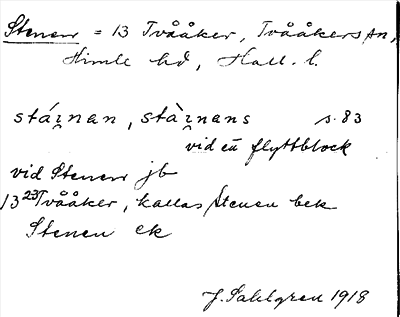 Stenen = 13 Tvååker, Tvååkers sn,
Himle hd, Hall. l.
stáı̯nan, stàı̯nans s. 83
vid en flyttblock
vid Stenen jb
13²³ Tvååker, kallas Stenen bek
Stenen ek
J. Sahlgren 1918